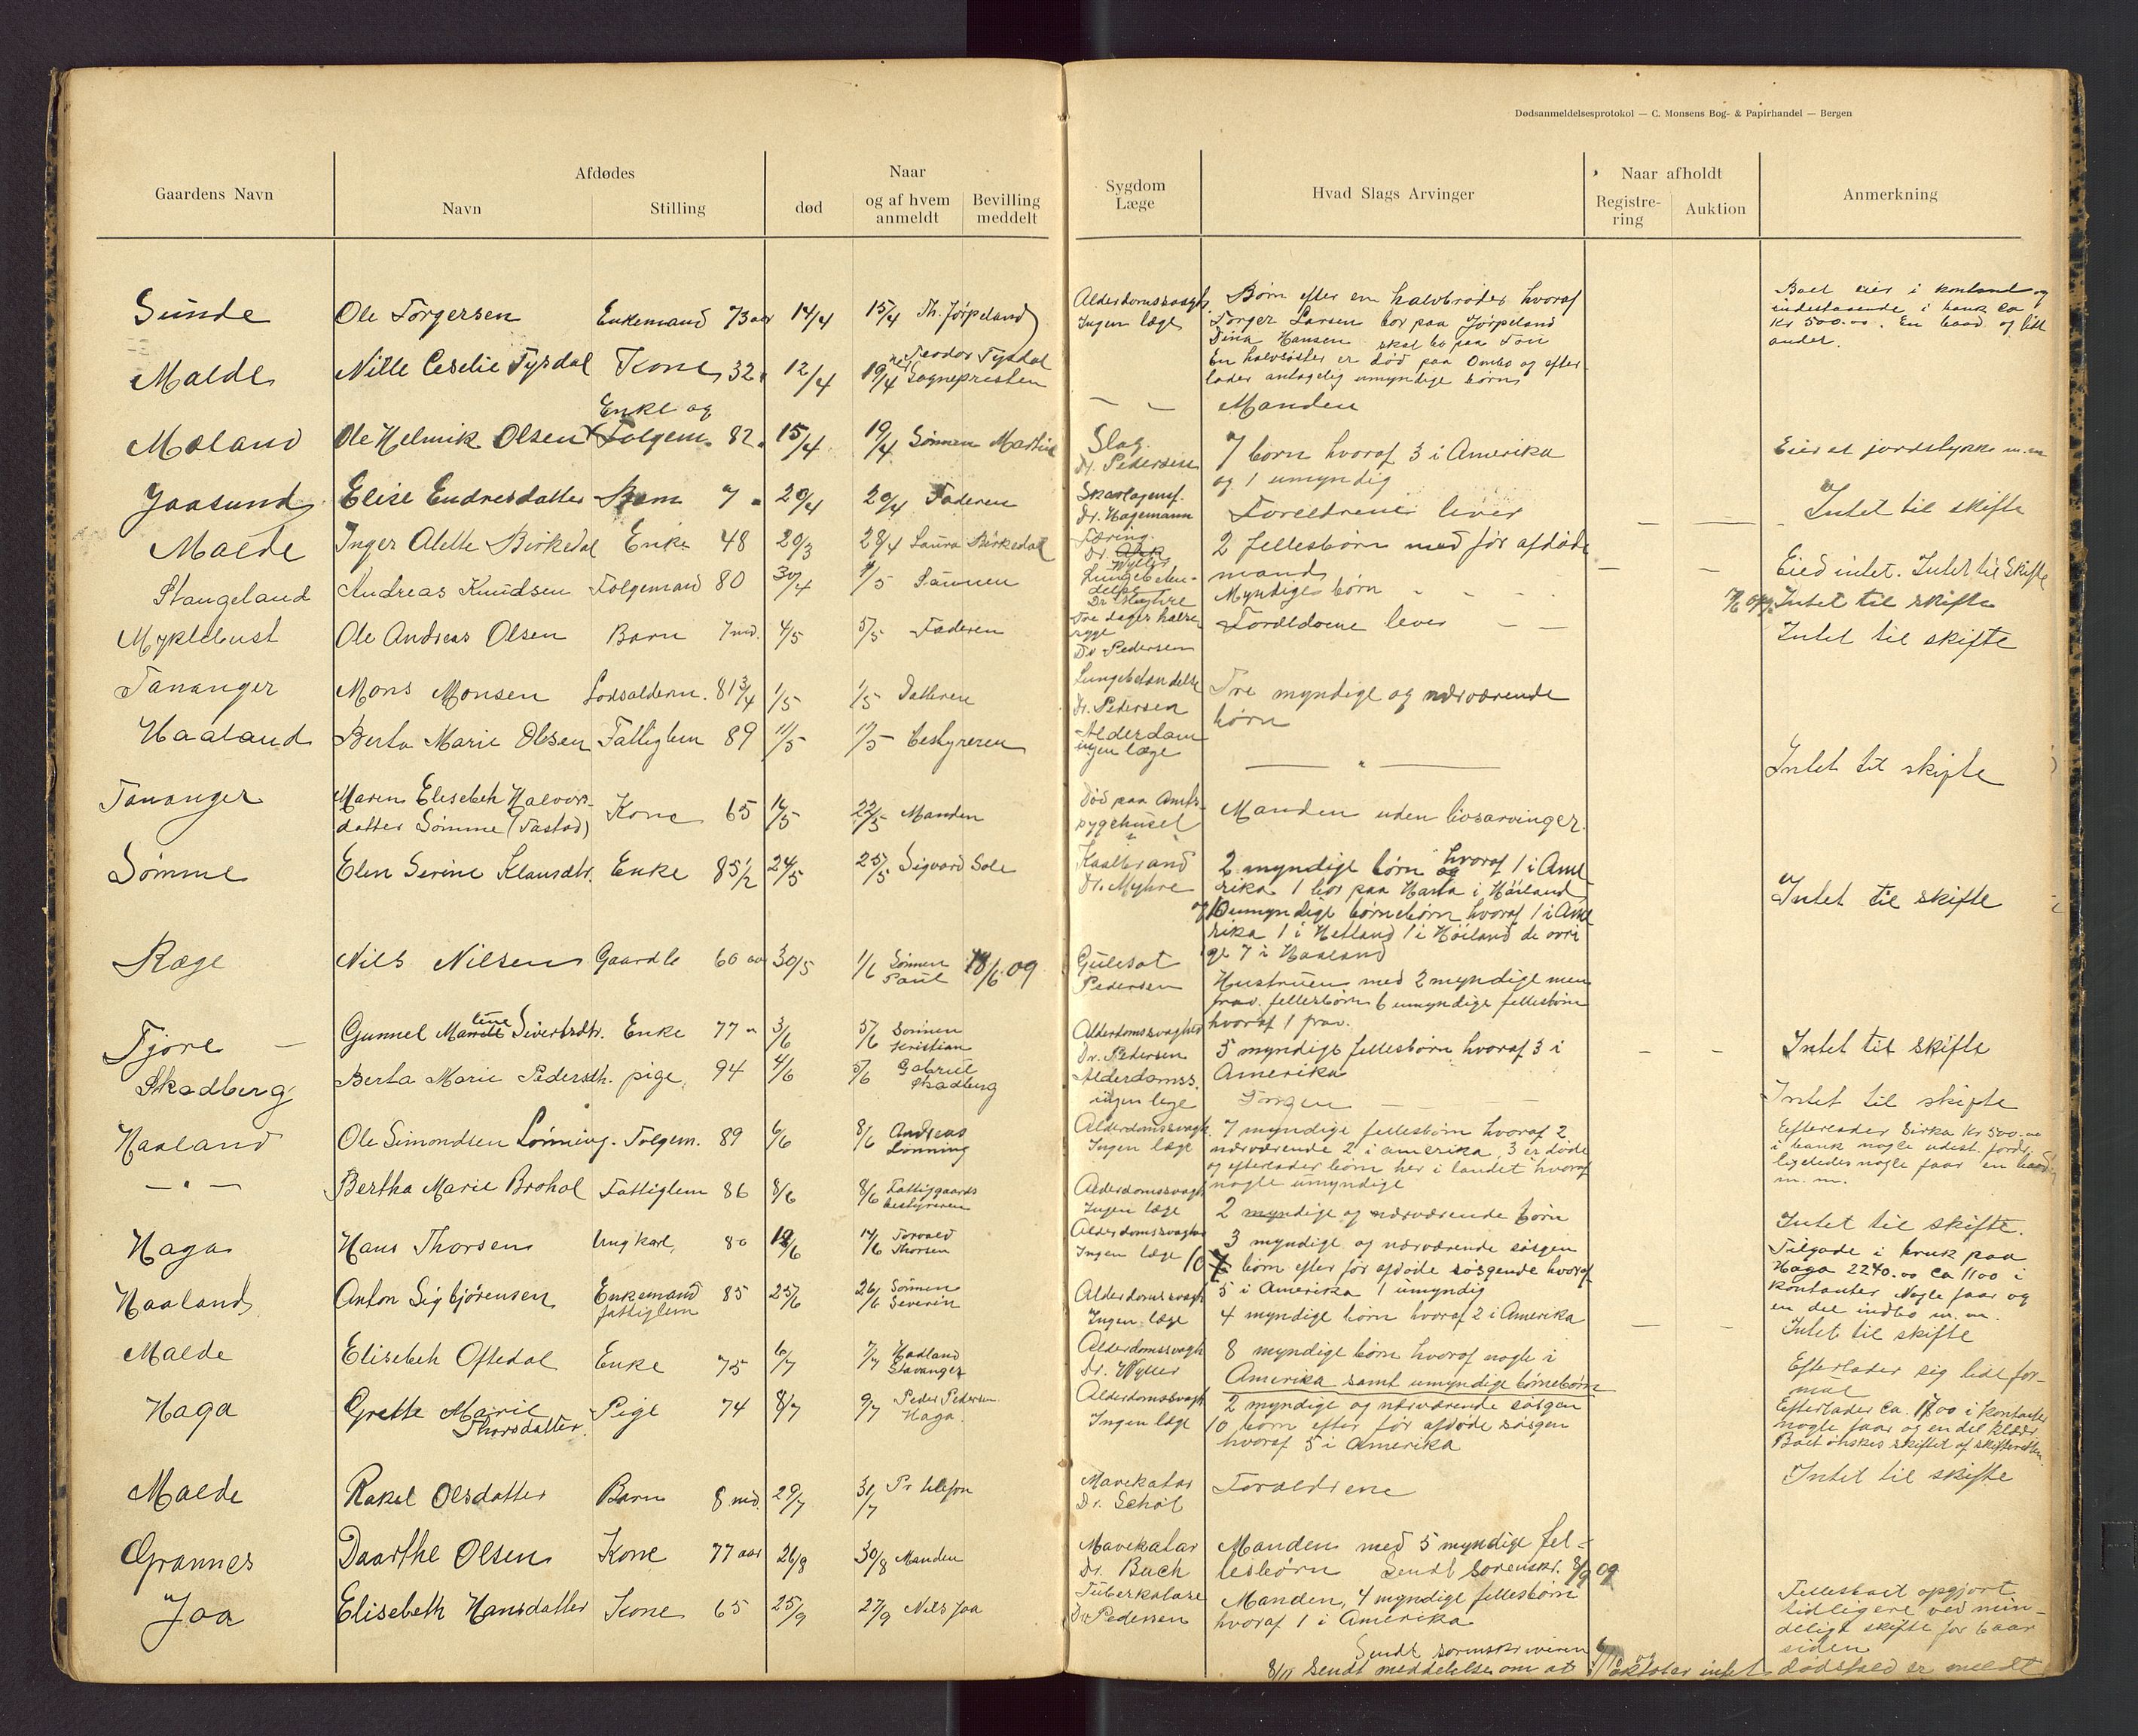 Dødsanmeldelsesprotokol — C. Monsens Bog- & Papirhandel — Bergen
Gaardens Navn
Afdødes
Navn
Stilling
Naar
død
og af hvem anmeldt
Bevilling meddelt
Sygdom
Læge
Hvad Slags Arvinger
Naar afholdt
Registre-
ring
Auktion
Anmerkning
Sunde Ole Torgersen Enkemand 73 aar 14/4 15/4 Th. Jørpeland
Alderdomssvagh.
Ingen læge
Børn efter en halvbroder hvoraf
Torger Larsen bor paa Jørpeland
Dina Hansen skal bo paa Fon
En halvsøster er død paa Ombo og efter-
lader antagelig umyndige børn
Boet eier i kontant og
indestaaende i bank ca
Kr 500.00. En baad og lidt
andet.
Malde Nille Ceselie Tysdal Kone 32 12/4 19/4 Teodor Tysdal
ved Sognepresten
— — Manden
Enke og
Møland Ole Helmik Olsen Folgem. 82 15/4 19/4 Sønnen Martin
Slag.
Dr. Pedersen
7 børn hvoraf 3 i Amerika
og 1 umyndig
Eier et jordstykke m.m
Jaasund Elise Endresdatter Barn 7 " 20/4 20/4 Faderen
Skarlagensf.
Dr. Hagemann
Foreldrene lever
Intet til skifte
Malde Inger Alette Birkedal Enke 48 20/3 28/4 Laura Birkedal
Tæring.
Dr.
Wyller
2 fellesbørn med før afdøde
mand
Eied intet. Intet til Skifte
Stangeland Andreas Knudsen Folgemand 80 30/4 1/5 Sønnen
Lungebeten-
delse
Dr Myhre
Myndige børn
Intet til skifte
Myklebust Ole Andreas Olsen Barn 7 md. 4/5 5/5 Faderen
Tre dages halse
syge
Dr Pedersen
Foreldrene lever — —
Intet til skifte
Tananger Mons Monsen Lodsalderm. 81 3/4 1/5 1/5 Datteren
Lungebetændelse
Dr. Pedersen
Tre myndige og nærværende
børn
Haaland Berta Marie Olsen Fattiglem 89 11/5 11/5 bestyreren
Alderdom
ingen læge
— " —
Intet til skifte
Tananger Maren Elisebeth Halvors-
datter Sømme (Tastad) Kone 65 14/5 22/5 Manden
Død paa Amts-
sygehuset
Manden uden livsarvinger.
Sømme Elen Serine Klausdtr. Enke 85 1/2 24/5 25/5 Sigvard Sole
Kaalbrand
Dr. Myhre
2 myndige børn hvoraf 1 i Ame
rika 1 bor paa Harta i Høiland
og 10 umyndige børnebørn hvoraf 1 i Ame
rika 1 i Hetland 1 i Høiland de øvri
ge 7 i Haaland
Intet til skifte
Ræge Nils Nilsen Gaardb 60 aar 30/5 1/6 Sønnen
Paul 18/6 09
Gulesot
Pedersen
Hustruen med 2 myndige men
frav. fellesbørn 6 umyndige fellesbørn
hvoraf 1 frav.
Tjore — Gunnel Martene Sivertsdtr. Enke 77 " 3/6 5/6 Sønnen
Kristian
Alderdomssvaghed
Dr. Pedersen
5 myndige fellesbørn hvoraf 3 i
Amerika
Intet til skifte
Skadberg Berta Marie Pedersdtr. pige 94 4/6 5/6 Gabriel
Skadberg
Alderdomss.
ingen lege
Ingen
Intet til skifte
Haaland Ole Simondsen Lønning. Folgem. 89 6/6 8/6 Andreas
Lønning
Alderdomssvagh.
Ingen læge
7 myndige fellesbørn hvoraf 2
nærværende 2 i amerika, 3 er døde
og efterlader børn her i landet hvoraf
nogle umyndige
Efterlader Sirka Kr 500.00
i bank nogle udest. fordr.
ligeledes nogle faar en baad
m. m.
— " — Bertha Marie Brohol Fattiglem 86 8/6 8/6 Fattiggaards
bestyreren
Alderdomssvagh
Ingen læge
2 myndige og nærværende børn
Intet til skifte.
Haga Hans Thorsen Ungkarl, 80 12/6 14/6 Torvald
Thorsen
Alderdomssvaghed
Ingen læge
3 myndige og nærværende søsgen
10 børn efter før afdøde søsgende hvoraf
5 i Amerika 1 umyndig
Tilgode i bruk paa
Haga 2240.00 ca 1100 i
kontanter Nogle faar og
en del indbo m. m.
Haaland Anton Sigbjørensen Enkemand
fattiglem 85 25/6 26/6 Sønnen
Severin
Alderdomssvagh
Ingen læge
4 myndige børn hvoraf 2 i Amerika
Intet til skifte
Malde Elisebeth Oftedal Enke 75 6/7 7/7 Hadland
Stavanger
Alderdomssvagh
Dr. Wyller
8 myndige børn hvoraf nogle i
Amerika samt umyndige børnebørn
Efterlader sig lidt for-
mue
Haga Grette Marie
Thorsdatter. Pige 74 8/7 9/7 Peder Pedersen
Haga.
Alderdomssvagh
Ingen læge
2 myndige og nærværende søsgen
10 børn efter før afdøde søsgen
hvoraf 5 i Amerika
Efterlader ca. 1700 i kontanter
nogle faar og en del klæder
Boet ønskes skiftet af skifteretten.
Malde Rakel Olsdatter Barn 8 md. 29/7 31/7 Pr telefon
Mavekatar
Dr. Schøl
Foreldrene
Intet til skifte
Grannes Daarthe Olsen Kone 77 aar 26/8 30/8 Manden
Mavekatar
Dr. Bach
Manden med 5 myndige fel-
lesbørn Sendt Sorenskr. 8/9 09
Joa Elisebeth Hansdatter Kone 65 25/9 27/9 Nils Joa
Tuberkulose
Dr Pedersen
Manden, 4 myndige fellesbørn
hvoraf 1 i Amerika
Fellesboet opgjort
tidligere ved min-
delige skifte for 6 aar
siden
Sendt sorenskriveren
8/11 Sendt meddelelse om at i oktober intet dødsfald er meldt